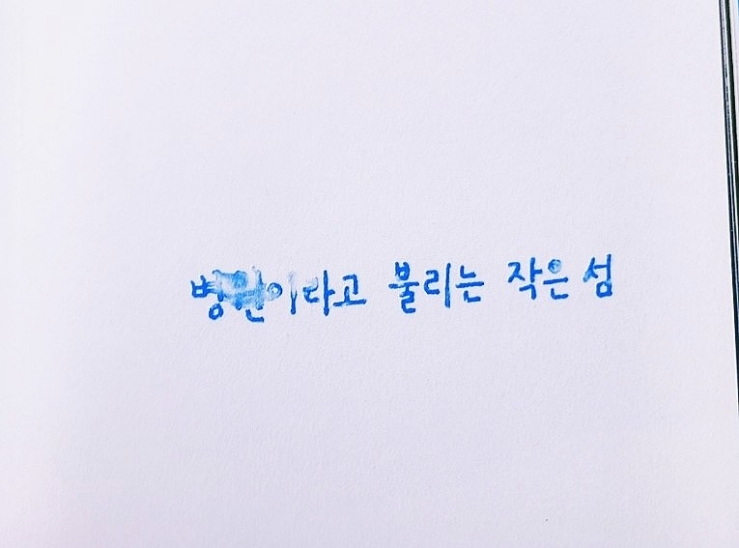 병원이라고 불리는 작은 섬